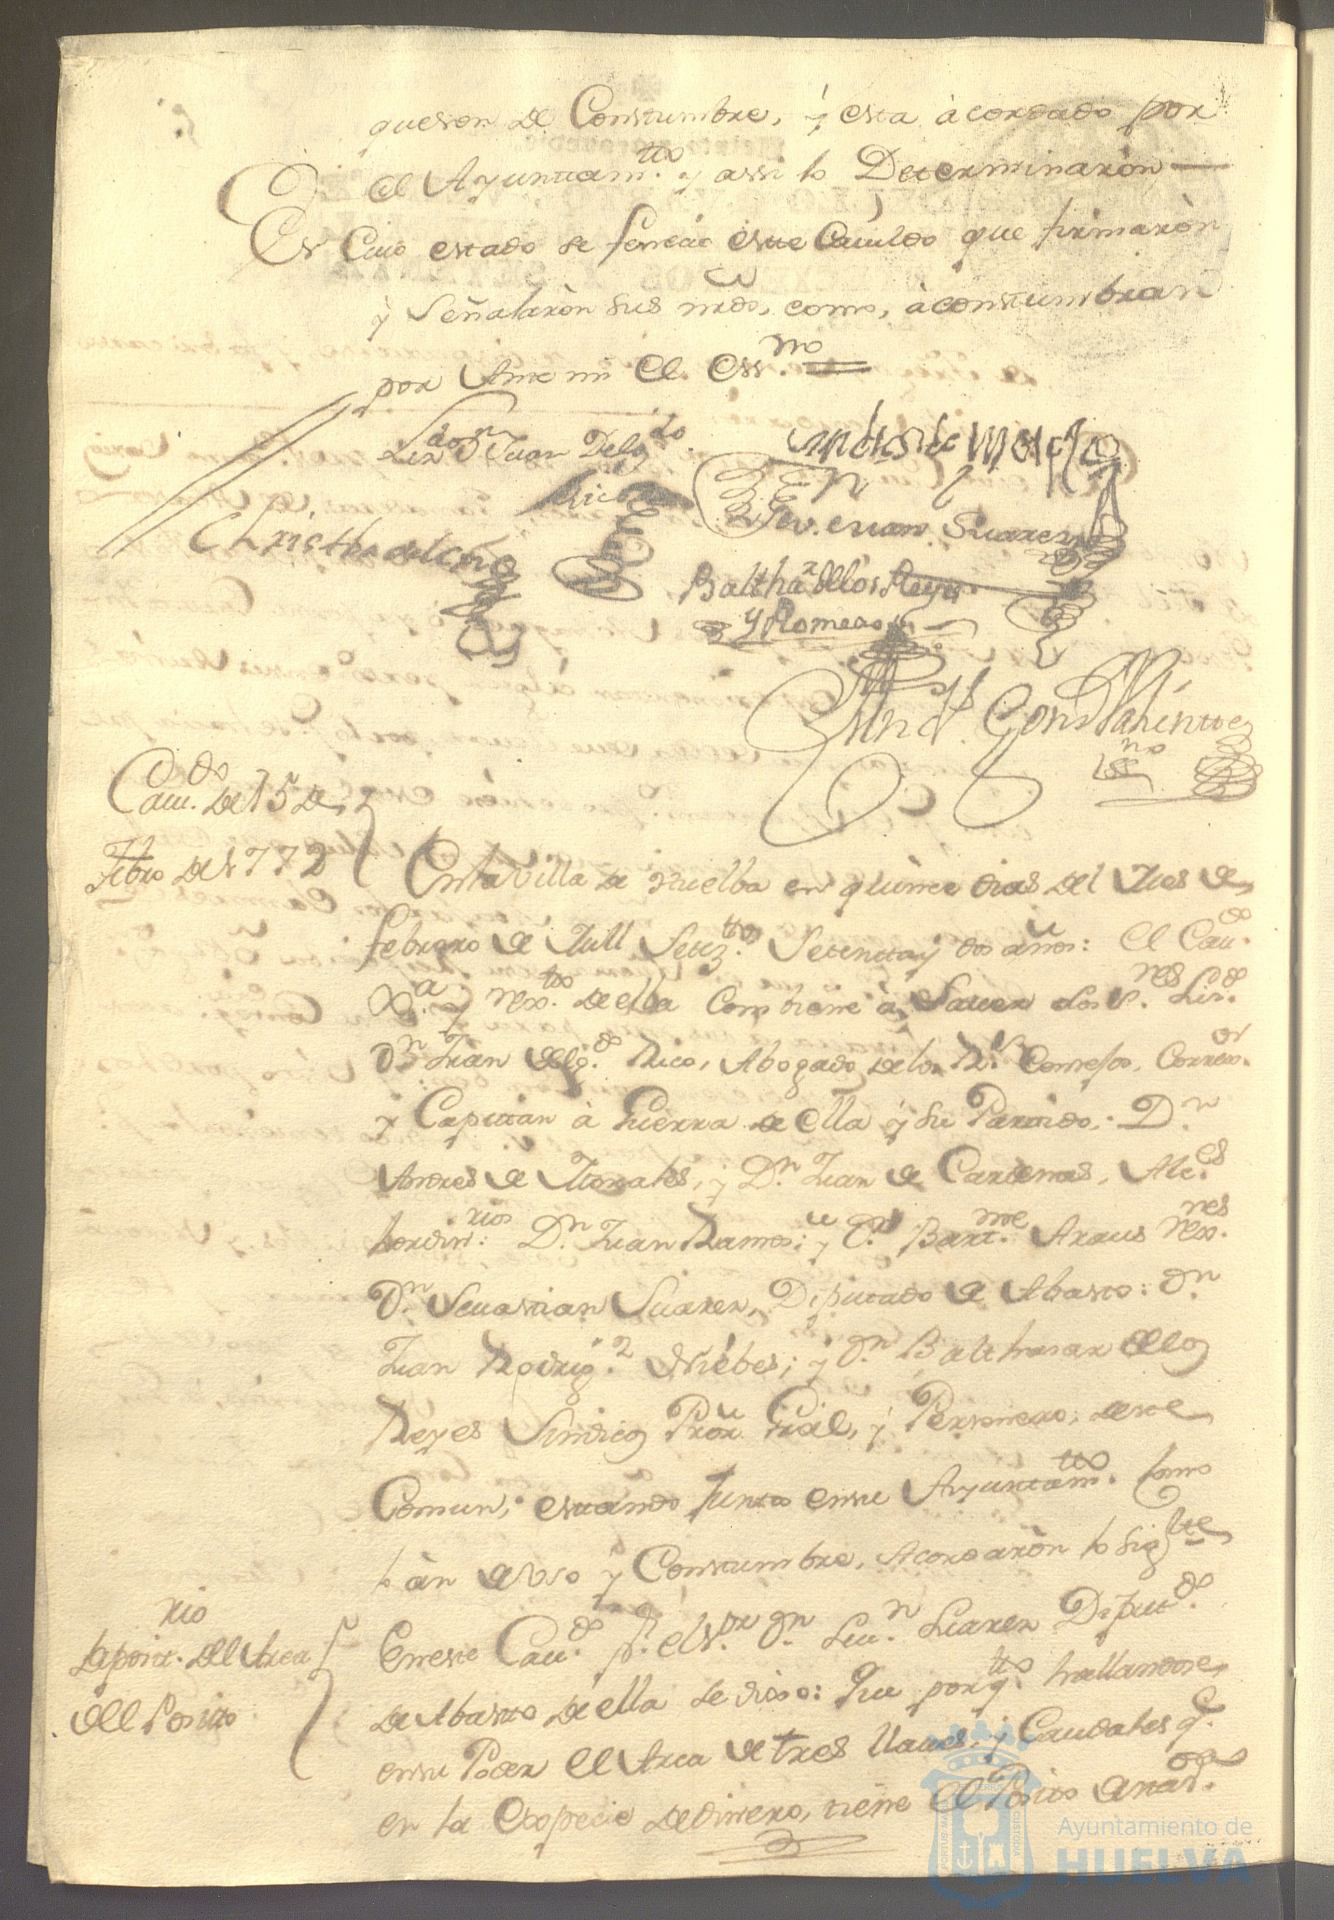 que son de Constumbre, ÿ esta àcordado por
el Ayuntam.tto y assi lo Determinaròn
En Cuio estado se feneciò este Cauildo que firmaròn
ÿ Señalaròn sus mrds, como, àconstumbran
por Ante mi el Essno
Lizdo Dn Juan Delgdo
Andrs de Morales
Rico
Sevasn Suarez
Christ
Balthar de los Reyes
y Romero
Ands Constantino
Esno
Cauldo de 15 de
Febro de 1772
En la Villa de Huelba en quince dias del Mes de
febrero de Mill Setez.tos Setenta y dos años: el Cau.do
Xa y rex.to de ella Combiene à Sauer Los S.res Liz.do
Dn Juan Delg.do Rico, Abogado de los R.s Consejos, Correx.or
y Capitan à Guerra de ella ÿ su Partido, Dn
Andres de Morales, ÿ Dn Juan de Cardenas, Alc.es
hordin.rios Dn Juan Ramos; y Dn Bart.me Araus rex.res
Dn Seuastian Suarez, Diputado de Abasto: Dn
Juan Rodrig.z de Niebes; ÿ Dn Balthasar de los
Reyes Sindico Pror Gral, ÿ Personero, de este
Comun, estando Junto en su Ayuntam.tto Como
lo àn de Vso y Constumbre, Acordaròn lo sig.tte
Depoit.rio del Arca
del Posito
En este Cau.do p.r el S.or Dn Seu.n Suarez Diput.do
de Abasto de ella se dixo: Que por q.tto hallandose
en su Poder el Arca de tres llaues, y Caudales q.e
en la Expecie de dinero, tiene el Posito
Ayuntamiento de
HUELVA